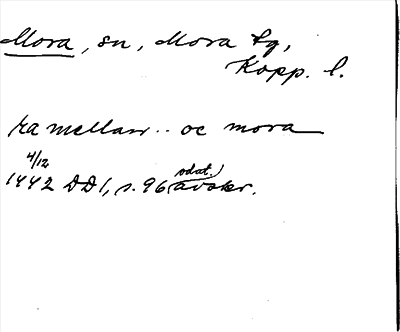 Mora, sn, Mora tg,
Kopp. l.
ra mellan .. oc mora
4/12
1442 DD1, s. 96 odat. avskr.